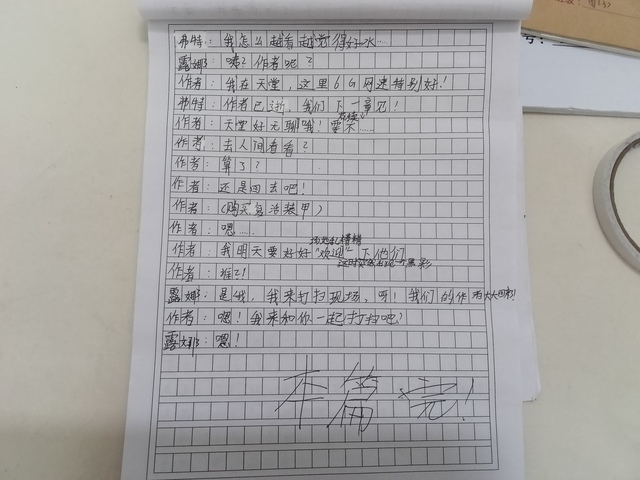 希特：我怎么越看越觉得好水…
露娜：咦？作者呢？
作者：我在天堂，这里6G网速特别好！
希特：作者已逝，我们下一章见！
作者：天堂好无聊哦！要不……
作者：去人间看看？
作者：算了？
作者：还是回去吧！
作者：（购买复活装甲）
作者：嗯……
作者：我明天要好好“欢迎”下他们
作者：谁？！
露娜：是我，我来打扫现场，呀！我们的作者大大回来！
作者：嗯！我来和你一起打扫吧？
露娜：嗯！
本篇完！